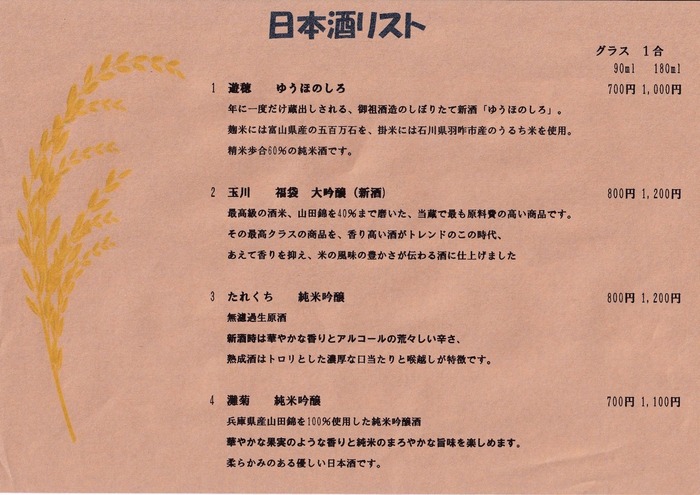 日本酒リスト
グラス 1合
90ml 180ml
1 遊穂 ゆうほのしろ 700円 1,000円
年に一度だけ蔵出しされる、御祖酒造のしぼりたて新酒「ゆうほのしろ」。
麹米には富山県産の五百万石を、掛米には石川県羽咋市産のうるち米を使用。
精米歩合60%の純米酒です。
2 玉川 福袋 大吟醸(新酒) 800円 1,200円
最高級の酒米、山田錦を40%まで磨いた、当蔵で最も原料費の高い商品です。
その最高クラスの商品を、香り高い酒がトレンドのこの時代、
あえて香りを抑え、米の風味の豊かさが伝わる酒に仕上げました
3 たれくち 純米吟醸 800円 1,200円
無濾過生原酒
新酒時は華やかな香りとアルコールの荒々しい辛さ、
熟成酒はトロリとした濃厚な口当たりと喉越しが特徴です。
4 灘菊 純米吟醸 700円 1,100円
兵庫県産山田錦を100%使用した純米吟醸酒
華やかな果実のような香りと純米のまろやかな旨味を楽しめます。
柔らかみのある優しい日本酒です。